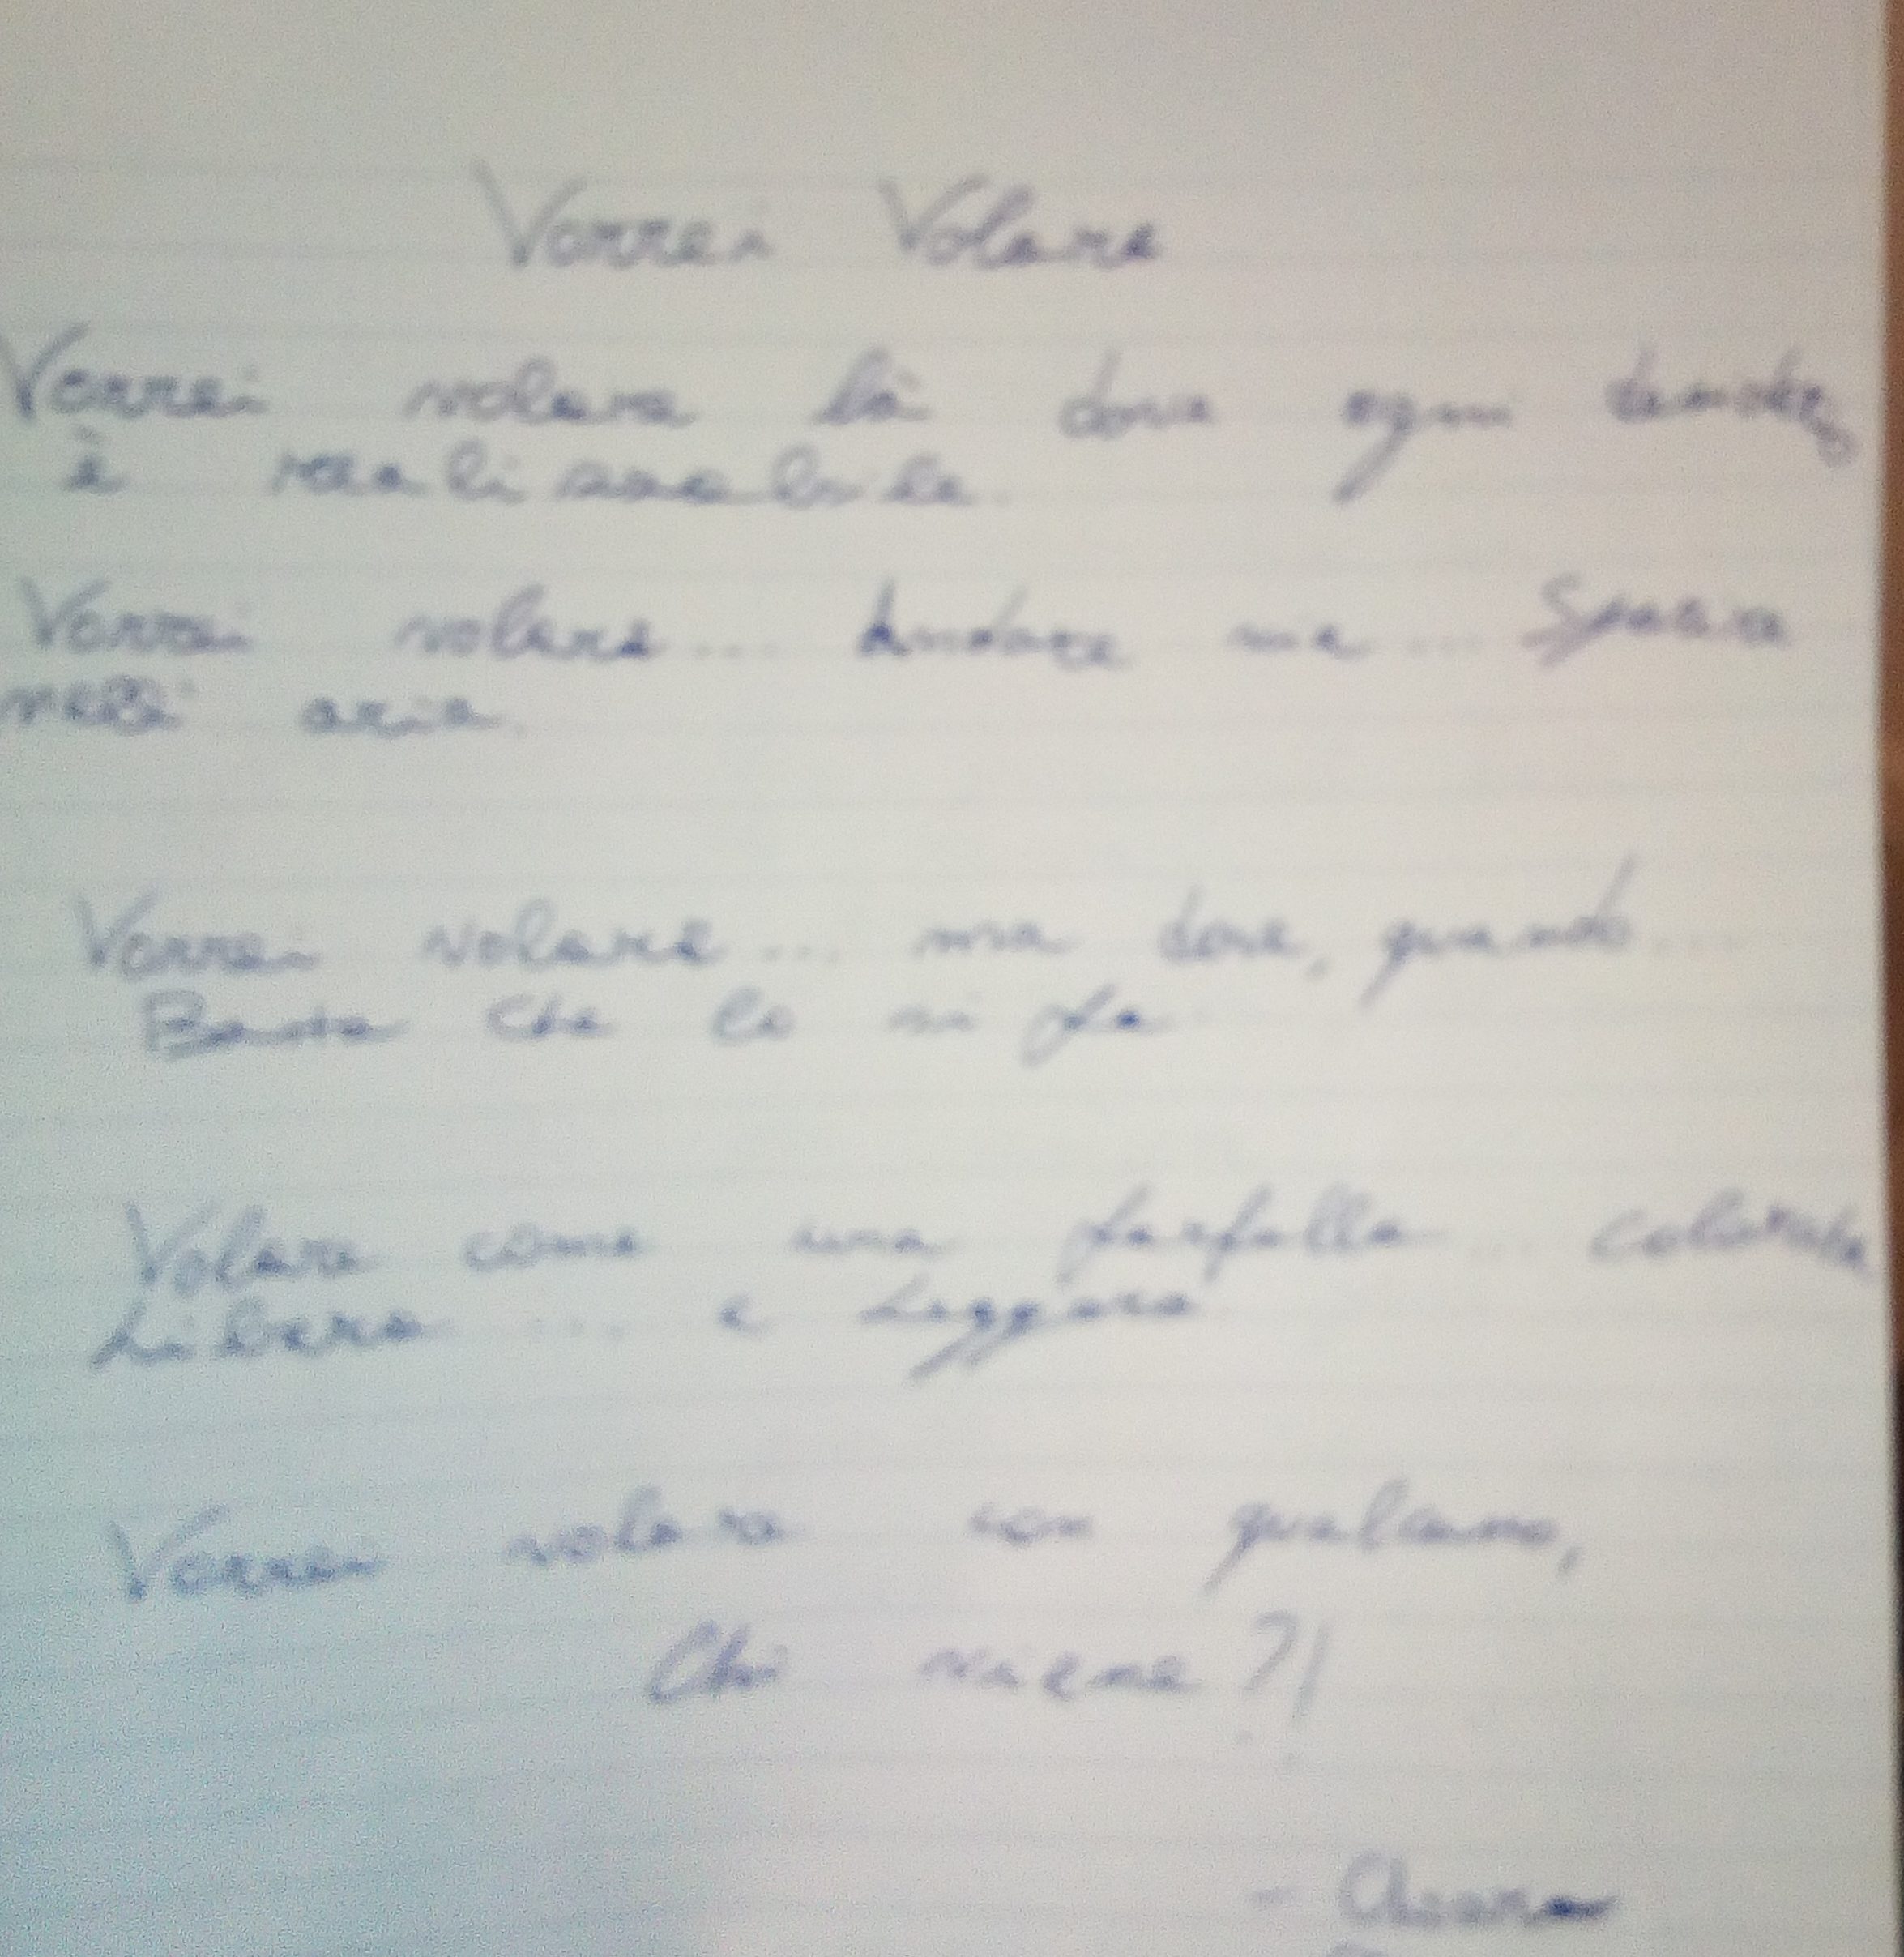 Vorrei Volare
Vorrei volare là dove ogni
è realizzabile
Vorrei volare... Andare via... Sparire
nell' aria.
Vorrei volare... ma dove, quando...
Basta che lo si fa
Volare come una farfalla... colorata
Libera... e Leggera
Vorrei volare con qualcuno,
Chi viene?!
- Chiara